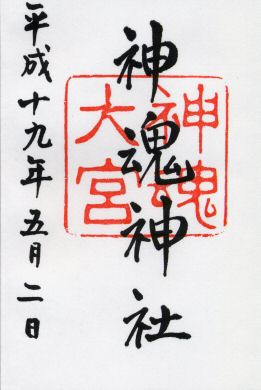 神魂神社
神魂
大宮
平成十九年五月二日